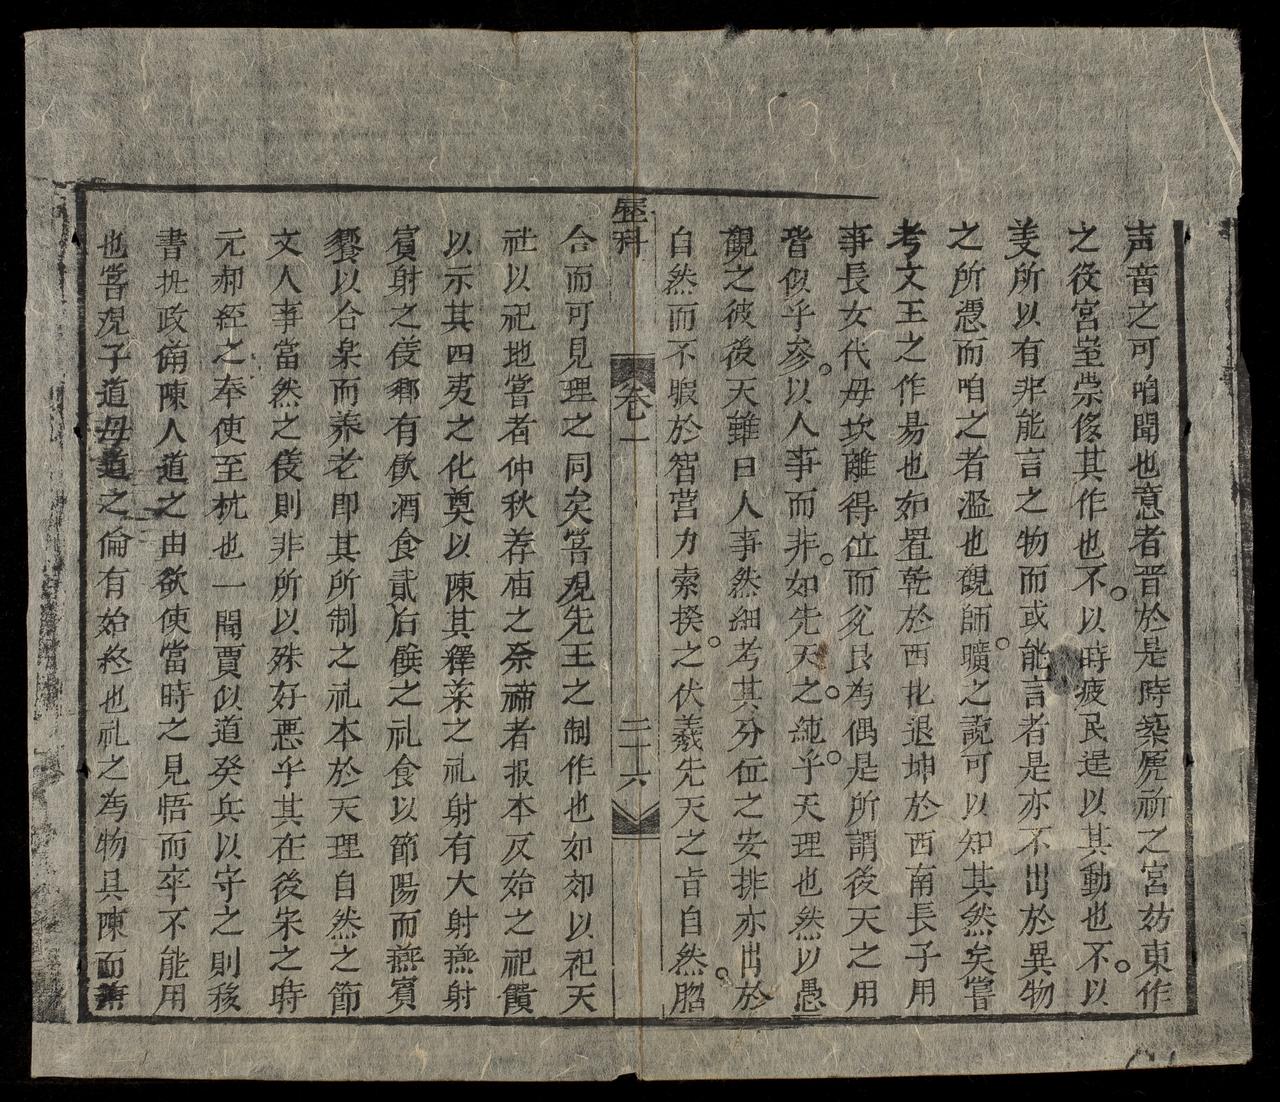 声音之可咱聞也意者晋於是時築虒祈之宮妨東作
之役宮室崇侈其作也不以時疲民逞以其動也不以
美所以有非能言之物而或能言者是亦不出於異物
之所憑而咱之者濫也觀師曠之說可以知其然矣嘗
考文王之作易也如置乾於西北退坤於西南長子用
事長女代母坎離得位而兊艮为偶是所謂後天之用
皆似乎參以人事而非如先天之純乎天理也然以愚
觀之彼後天雖曰人事然細考其分位之安排亦出於
自然而不暇於智营力索揆之伏羲先天之旨自然脗
歷科
卷一
二十六
合而可見理之同矣嘗观先王之制作也如郊以祀天
社以祀地嘗者仲秋荐庙之祭禘者报本反始之祀饋
以示其四夷之化奠以陳其釋菜之礼射有大射燕射
賓射之仪鄉有飲酒食貳后饌之礼食以節陽而燕賓
饗以合枲而养老即其所制之礼本於天理自然之節
文人事當然之仪則非所以殊好悪乎其在後宋之時
元郝経之奉使至杭也一聞賈似道癸兵以守之則移
書批政俻陳人道之由欲使當時之見悟而卒不能用
也嘗观子道母道之倫有始終也礼之为物具陳而